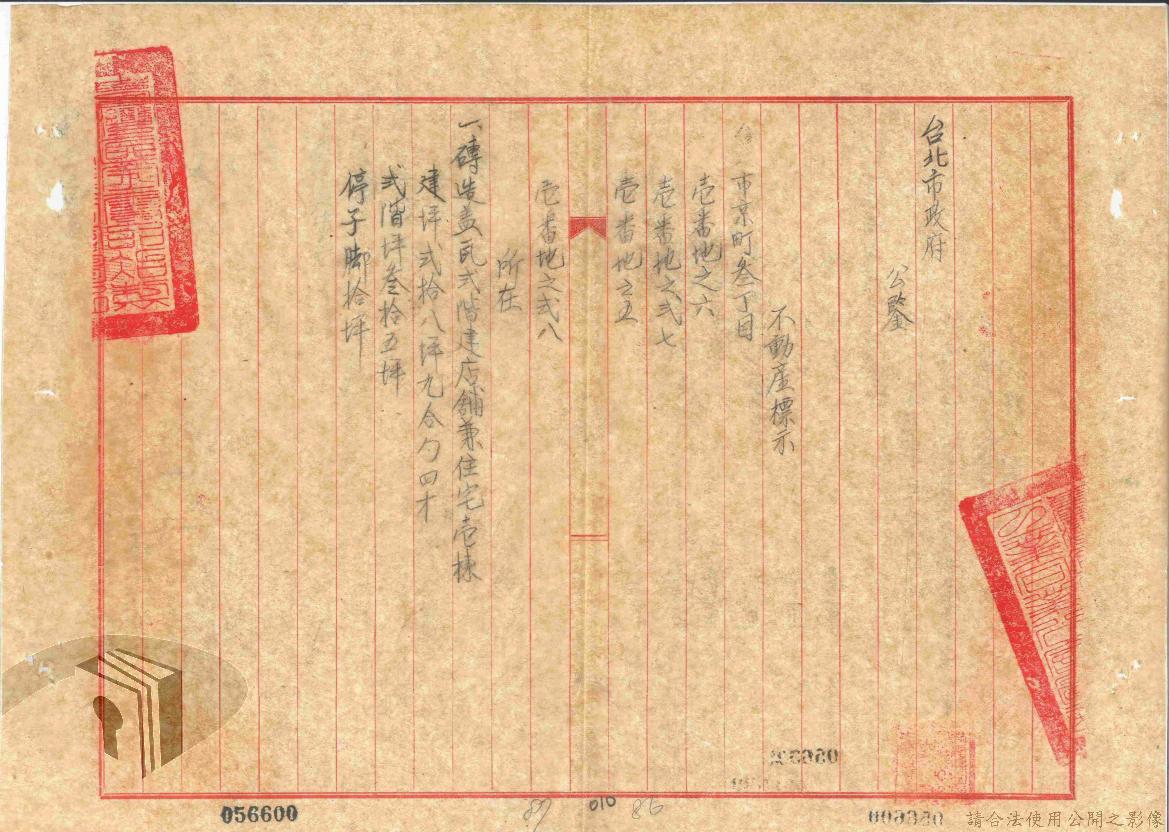 台北市政府
公鑒
不動產標示
東京町叁丁目
壱番地之六
壱番地之弍七
壱番地之五
壱番地之弍八
所在
一磚造盖瓦弍階建店舖兼住宅壱棟
建坪弍拾八坪九合勺四才
弍階坪叁拾五坪
停子脚拾坪
056600
87
010
86
請合法使用公開之影像